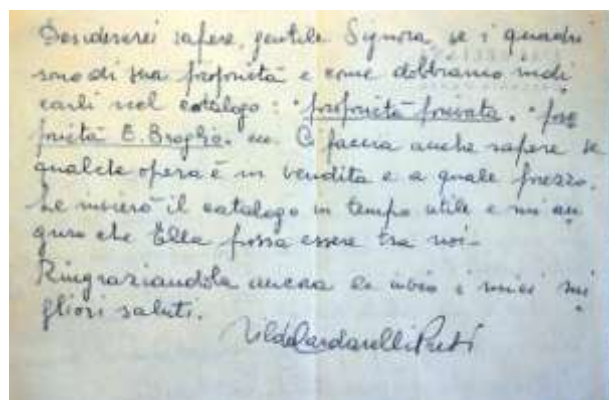 Desidererei sapere, gentile Signora, se i quadri
sono di sua proprietà e come dobbiamo indi
carli nel catalogo: "proprietà privata. "pro
prietà E. Broglio. Ci faccia anche sapere se
qualche opera è in vendita e a quale prezzo.
Le invierò il catalogo in tempo utile e mi au
guro che Ella possa essere tra noi -
Ringraziandola ancora Le invio i miei mi
gliori saluti.
Cardarelli